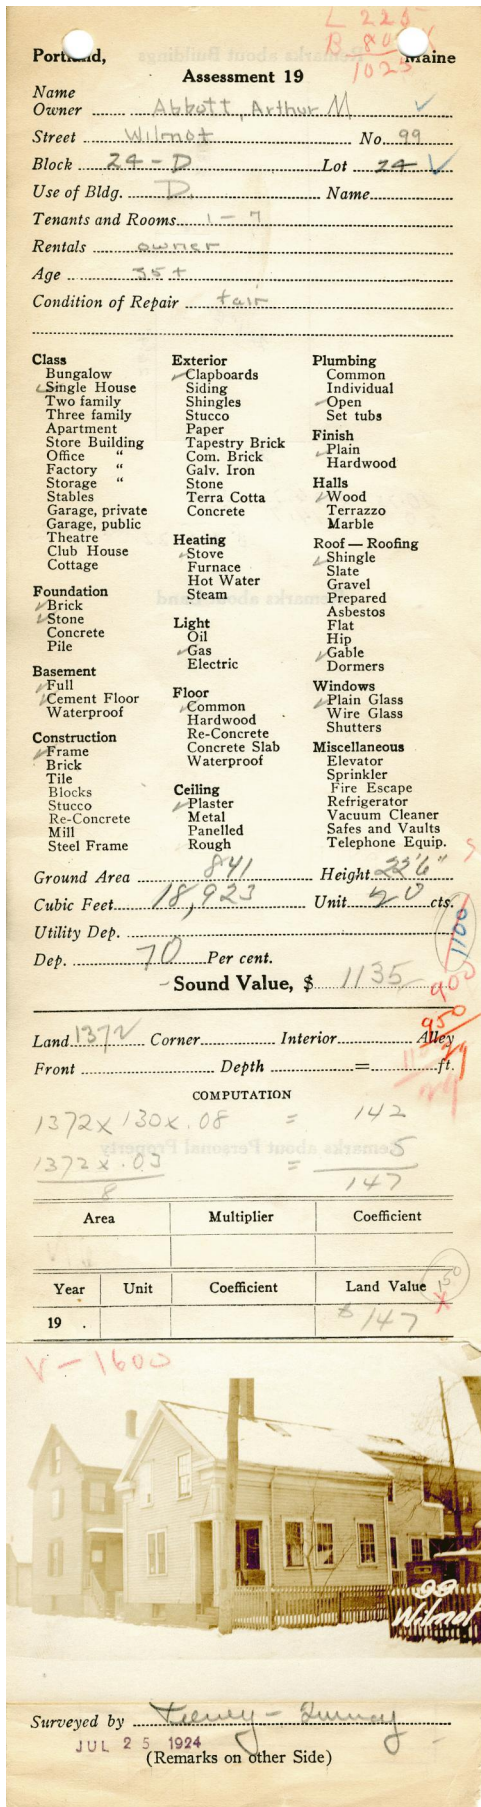 L 225
B 80
1025
Portland, Maine
Assessment 19
Name
Owner Abbott, Arthur M
Street Wilmot No. 99
Block 24-D Lot 24
Use of Bldg. D. Name
Tenants and Rooms 1-7
Rentals owner
Age 35+
Condition of Repair fair
Class
Bungalow
Single House
Two family
Three family
Apartment
Store Building
Office "
Factory "
Storage "
Stables
Garage, private
Garage, public
Theatre
Club House
Cottage
Foundation
Brick
Stone
Concrete
Pile
Basement
Full
Cement Floor
Waterproof
Construction
Frame
Brick
Tile
Blocks
Stucco
Re-Concrete
Mill
Steel Frame
Exterior
Clapboards
Siding
Shingles
Stucco
Paper
Tapestry Brick
Com. Brick
Galv. Iron
Stone
Terra Cotta
Concrete
Heating
Stove
Furnace
Hot Water
Steam
Light
Oil
Gas
Electric
Floor
Common
Hardwood
Re-Concrete
Concrete Slab
Waterproof
Ceiling
Plaster
Metal
Panelled
Rough
Plumbing
Common
Individual
Open
Set tubs
Finish
Plain
Hardwood
Halls
Wood
Terrazzo
Marble
Roof — Roofing
Shingle
Slate
Gravel
Prepared
Asbestos
Flat
Hip
Gable
Dormers
Windows
Plain Glass
Wire Glass
Shutters
Miscellaneous
Elevator
Sprinkler
Fire Escape
Refrigerator
Vacuum Cleaner
Safes and Vaults
Telephone Equip.
Ground Area 841 Height 22'6"
Cubic Feet 18,923 Unit 20 cts.
1100
Utility Dep.
Dep. 70 Per cent.
900
Sound Value, $ 1135
950
Land 1372 Corner Interior Alley
29
Front Depth = ft.
COMPUTATION
1372 x 130 x .08 = 142
1372 x .03 = 5
8 147
Area Multiplier Coefficient
150
Year Unit Coefficient Land Value
19 . $147
V-1600
99
Wilmot
Surveyed by
JUL 25 1924
(Remarks on other Side)